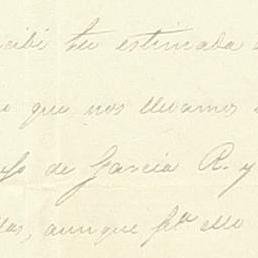 cibi tu estimada
que nos llevamos
de Garcia R. y
las, aunque pª ello